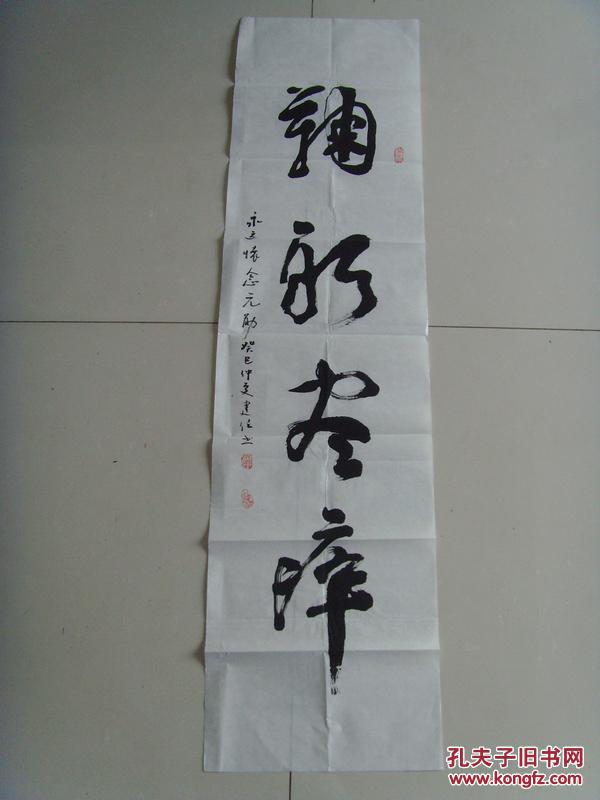 鞠躬尽瘁
永远怀念元勋癸巳仲夏建
孔夫子旧书网
www.kongfz.com